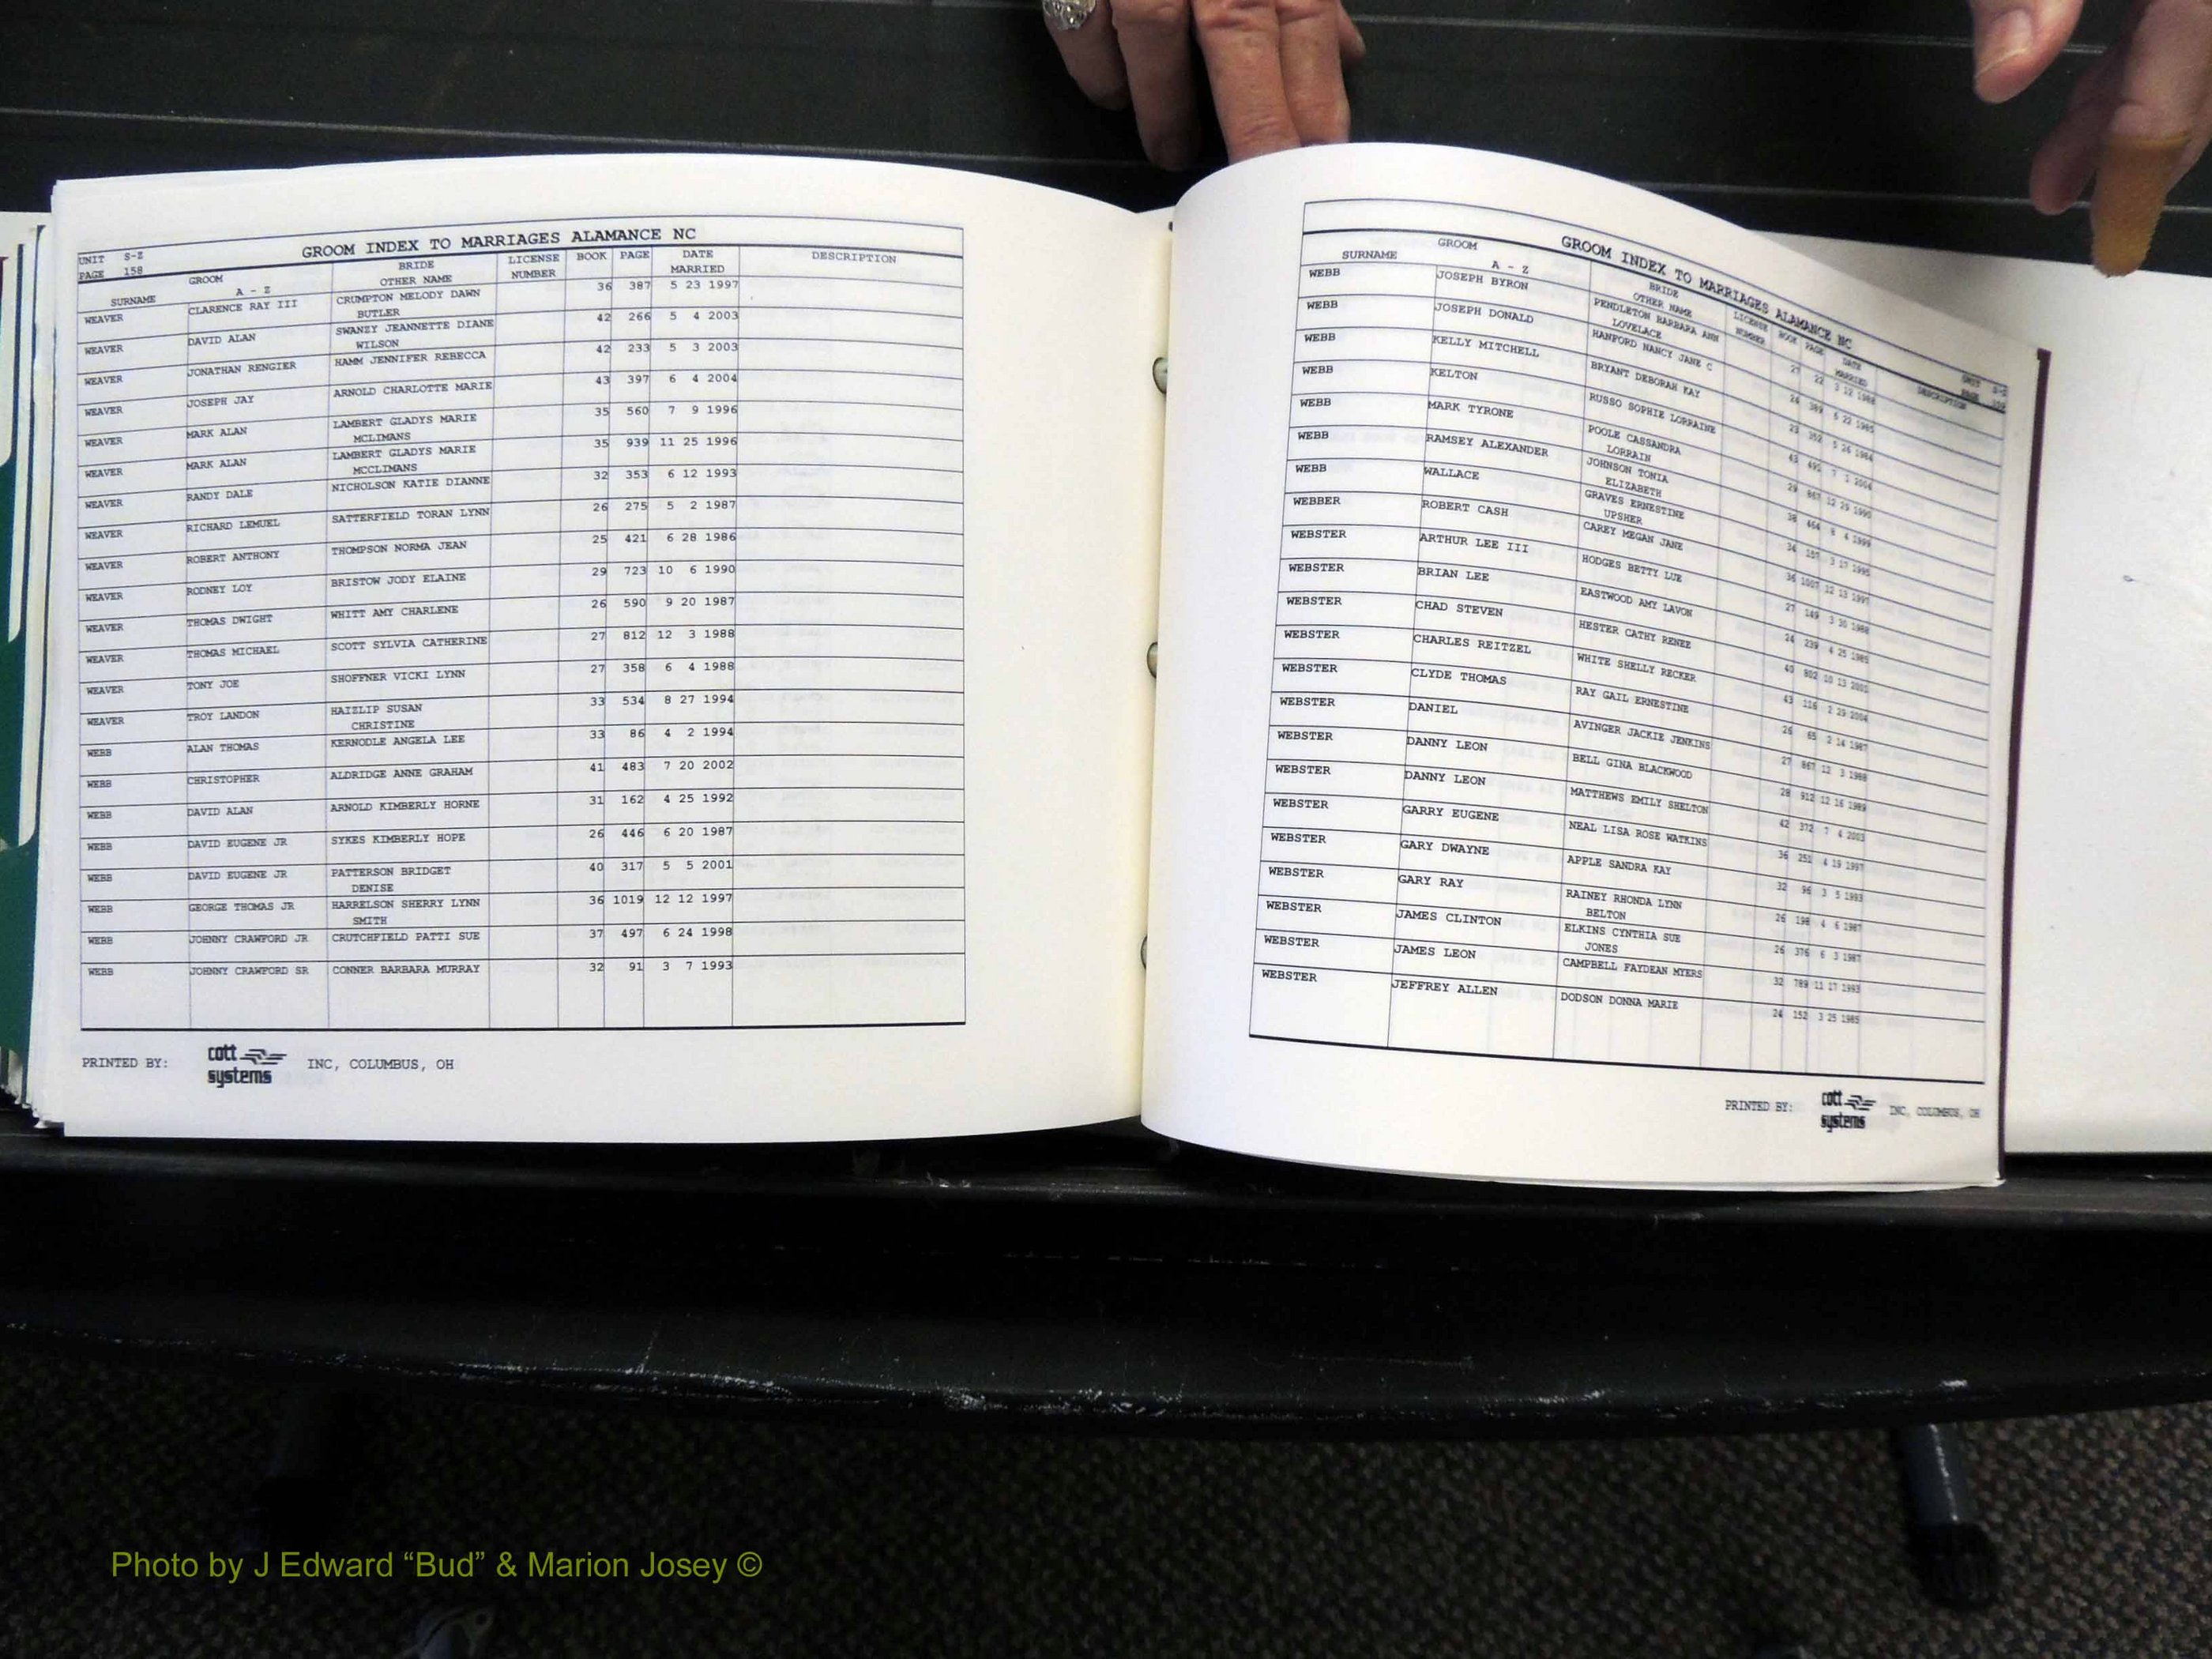 GROOM INDEX TO MARRIAGES ALAMANCE NC
UNIT S-Z
PAGE 158
GROOM BRIDE LICENSE BOOK PAGE DATE DESCRIPTION
SURNAME A - Z OTHER NAME NUMBER MARRIED
WEAVER CLARENCE RAY III CRUMPTON MELODY DAWN 36 387 5 23 1997
BUTLER
WEAVER DAVID ALAN SWANZY JEANNETTE DIANE 42 266 5 4 2003
WILSON
WEAVER JONATHAN RENGIER HAMM JENNIFER REBECCA 42 233 5 3 2003
WEAVER JOSEPH JAY ARNOLD CHARLOTTE MARIE 43 397 6 4 2004
WEAVER MARK ALAN LAMBERT GLADYS MARIE 35 560 7 9 1996
MCLIMANS
WEAVER MARK ALAN LAMBERT GLADYS MARIE 35 939 11 25 1996
MCCLIMANS
WEAVER RANDY DALE NICHOLSON KATIE DIANNE 32 353 6 12 1993
WEAVER RICHARD LEMUEL SATTERFIELD TORAN LYNN 26 275 5 2 1987
WEAVER ROBERT ANTHONY THOMPSON NORMA JEAN 25 421 6 28 1986
WEAVER RODNEY LOY BRISTOW JODY ELAINE 29 723 10 6 1990
WEAVER THOMAS DWIGHT WHITT AMY CHARLENE 26 590 9 20 1987
WEAVER THOMAS MICHAEL SCOTT SYLVIA CATHERINE 27 812 12 3 1988
WEAVER TONY JOE SHOFFNER VICKI LYNN 27 358 6 4 1988
WEAVER TROY LANDON HAIZLIP SUSAN 33 534 8 27 1994
CHRISTINE
WEBB ALAN THOMAS KERNODLE ANGELA LEE 33 86 4 2 1994
WEBB CHRISTOPHER ALDRIDGE ANNE GRAHAM 41 483 7 20 2002
WEBB DAVID ALAN ARNOLD KIMBERLY HORNE 31 162 4 25 1992
WEBB DAVID EUGENE JR SYKES KIMBERLY HOPE 26 446 6 20 1987
WEBB DAVID EUGENE JR PATTERSON BRIDGET 40 317 5 5 2001
DENISE
WEBB GEORGE THOMAS JR HARRELSON SHERRY LYNN 36 1019 12 12 1997
SMITH
WEBB JOHNNY CRAWFORD JR CRUTCHFIELD PATTI SUE 37 497 6 24 1998
WEBB JOHNNY CRAWFORD SR CONNER BARBARA MURRAY 32 91 3 7 1993
PRINTED BY: cott systems INC, COLUMBUS, OH
GROOM INDEX TO MARRIAGES ALAMANCE NC
UNIT S-Z
GROOM BRIDE LICENSE BOOK PAGE DATE DESCRIPTION
SURNAME A - Z OTHER NAME NUMBER MARRIED
WEBB JOSEPH BYRON PENDLETON BARBARA ANN 27 22 3 12 1988
LOVELACE
WEBB JOSEPH DONALD HANFORD NANCY JANE C 24 389 6 22 1985
WEBB KELLY MITCHELL BRYANT DEBORAH KAY 23 352 5 26 1984
WEBB KELTON RUSSO SOPHIE LORRAINE 43 495 7 1 2004
WEBB MARK TYRONE POOLE CASSANDRA 29 867 12 29 1990
LORRAIN
WEBB RAMSEY ALEXANDER JOHNSON TONIA 38 464 8 4 1999
ELIZABETH
WEBB WALLACE GRAVES ERNESTINE 34 157 3 17 1995
UPSHER
WEBBER ROBERT CASH CAREY MEGAN JANE 36 1007 12 13 1997
WEBSTER ARTHUR LEE III HODGES BETTY LUE 27 149 3 30 1988
WEBSTER BRIAN LEE EASTWOOD AMY LAVON 24 239 4 25 1985
WEBSTER CHAD STEVEN HESTER CATHY RENEE 40 802 10 13 2001
WEBSTER CHARLES REITZEL WHITE SHELLY RECKER 43 116 2 29 2004
WEBSTER CLYDE THOMAS RAY GAIL ERNESTINE 26 65 2 14 1987
WEBSTER DANIEL AVINGER JACKIE JENKINS 27 867 12 3 1988
WEBSTER DANNY LEON BELL GINA BLACKWOOD 28 912 12 16 1989
WEBSTER DANNY LEON MATTHEWS EMILY SHELTON 42 372 7 4 2003
WEBSTER GARRY EUGENE NEAL LISA ROSE WATKINS 36 251 4 19 1997
WEBSTER GARY DWAYNE APPLE SANDRA KAY 32 96 3 5 1993
WEBSTER GARY RAY RAINEY RHONDA LYNN 26 198 4 6 1987
BELTON
WEBSTER JAMES CLINTON ELKINS CYNTHIA SUE 26 376 6 3 1987
JONES
WEBSTER JAMES LEON CAMPBELL FAYDEAN MYERS 32 789 11 17 1993
WEBSTER JEFFREY ALLEN DODSON DONNA MARIE 24 152 3 25 1985
PRINTED BY: cott systems INC, COLUMBUS, OH
Photo by J Edward “Bud” & Marion Josey ©